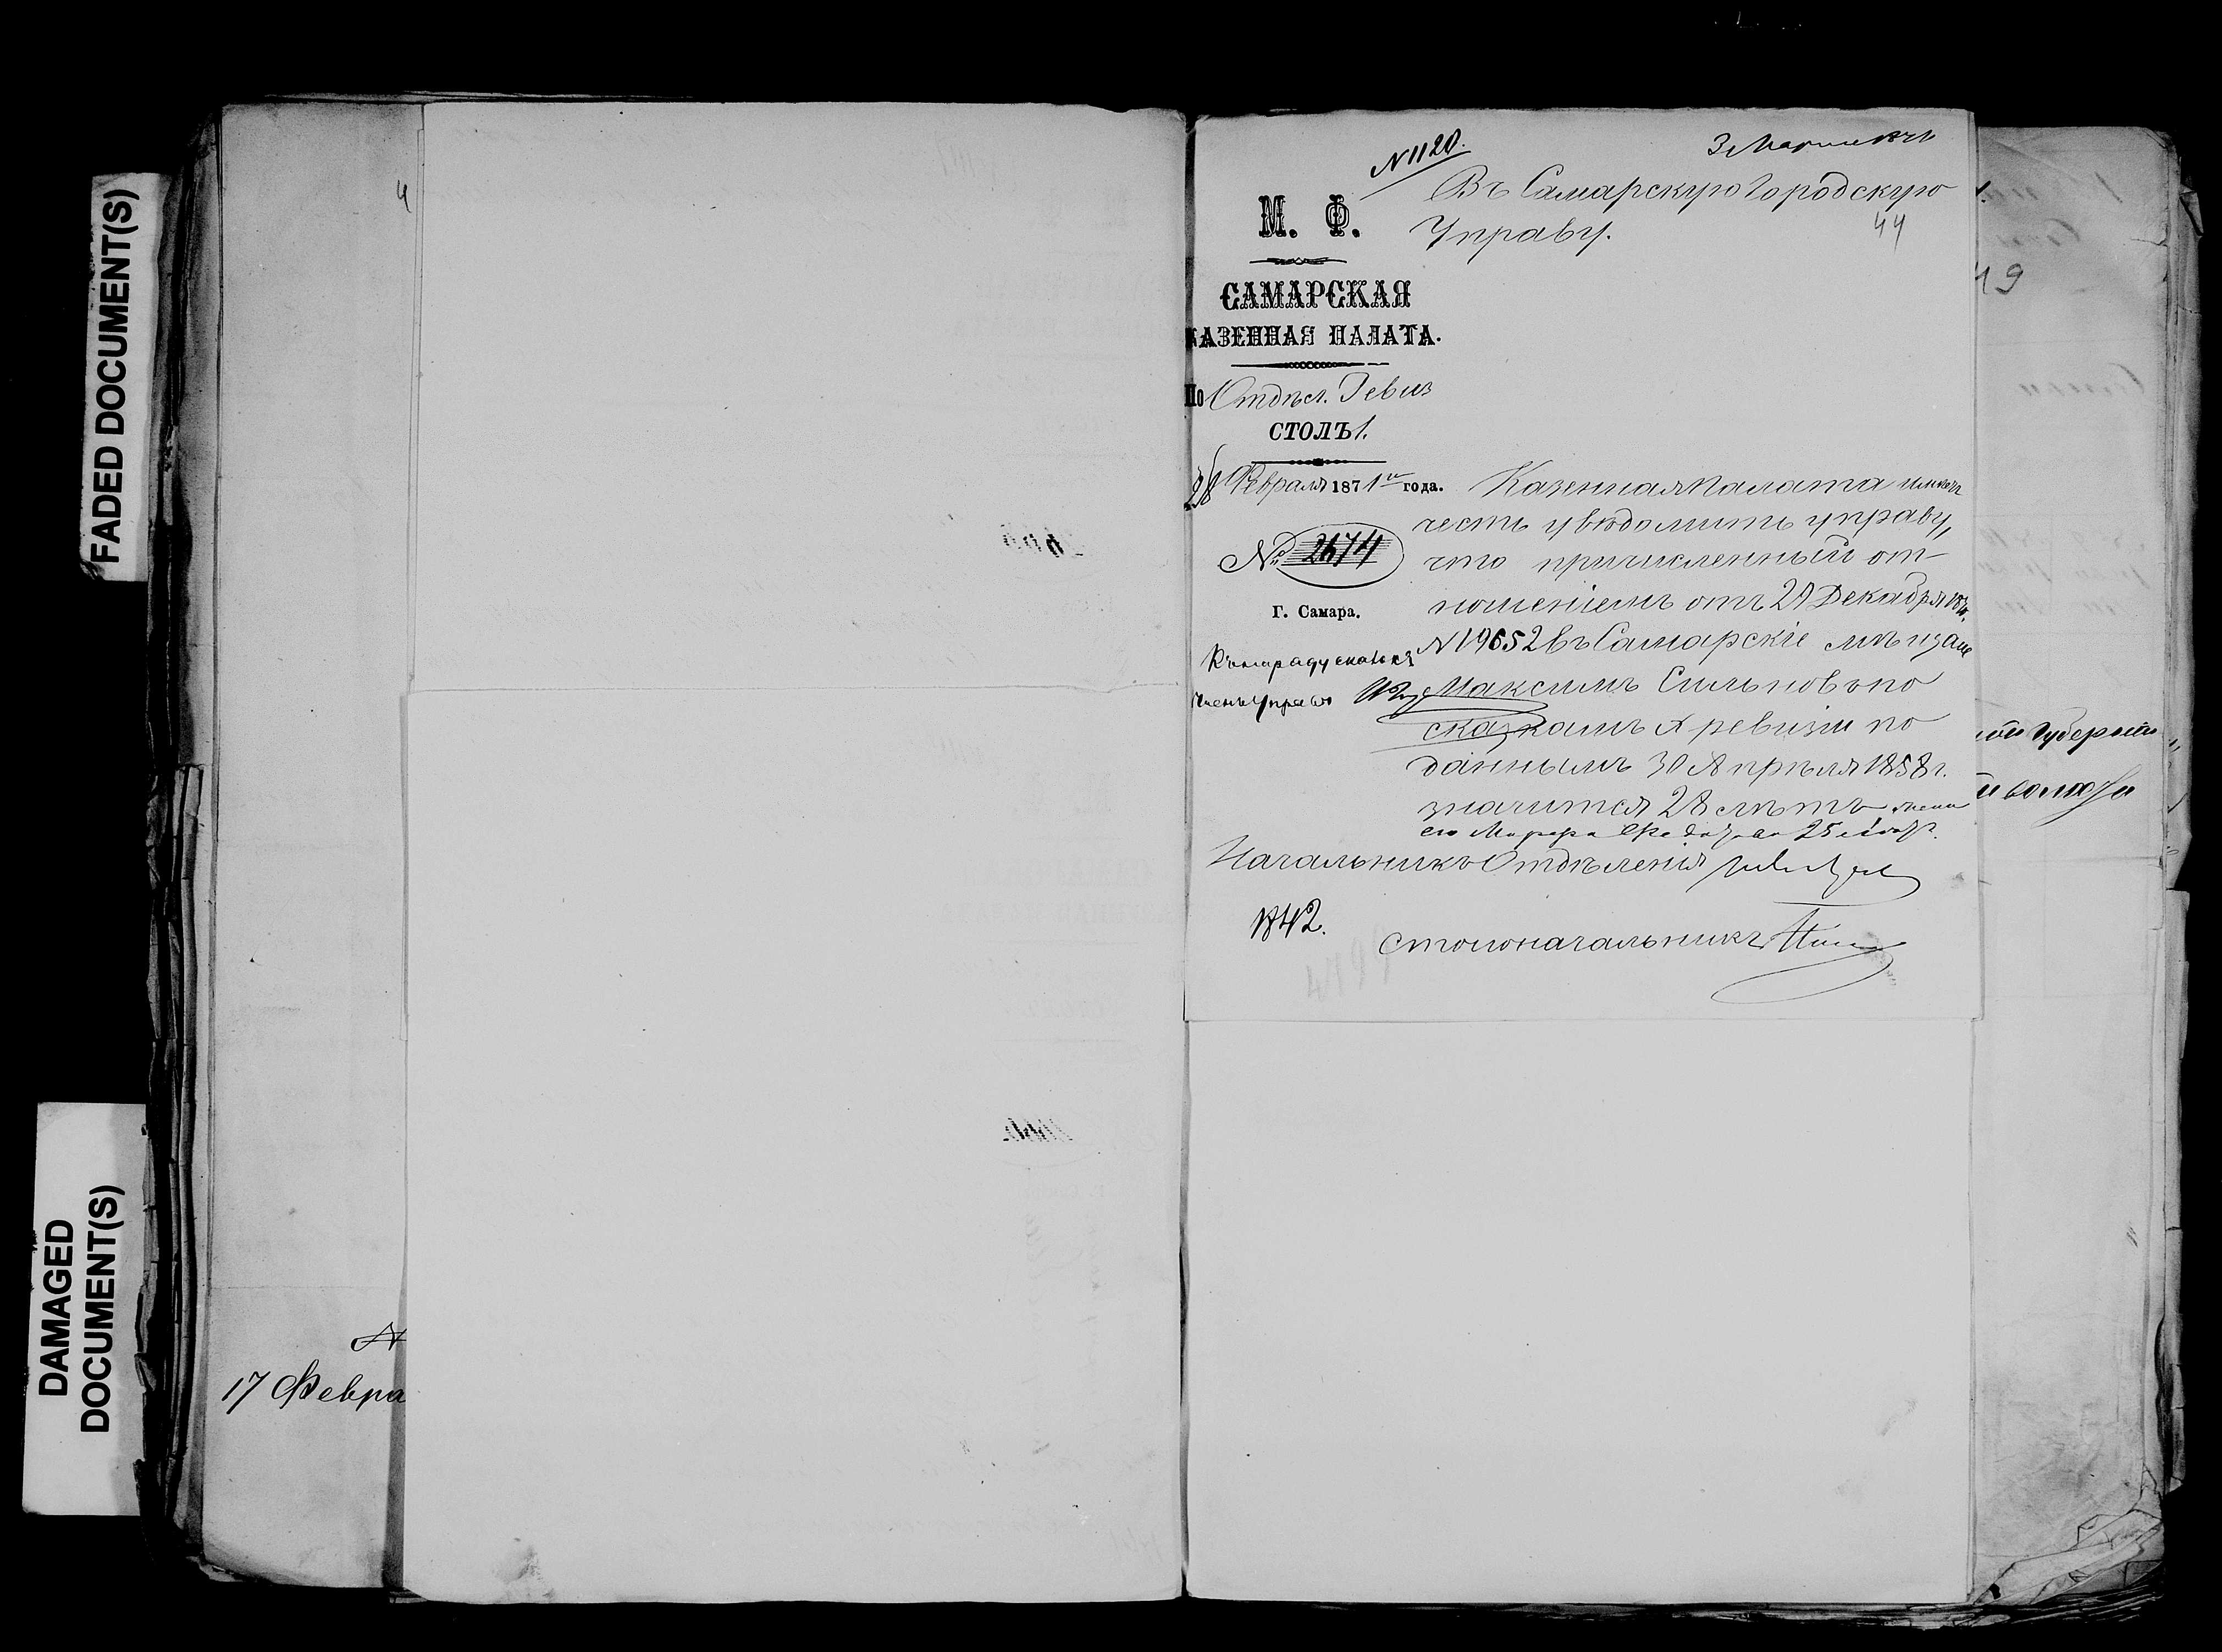 FADED DOCUMENT(S)
DAMAGED
DOCUMENT(S)
4
17 Февра
N 1120.
3 Марта 1871
Въ Самарскую Городскую
Управу.
44
М. Ф.
САМАРСКАЯ
КАЗЕННАЯ ПАЛАТА.
По Отдѣл. Ревиз
СТОЛЪ 1.
28 Февраля 1871 года.
№ 2674
Г. Самара.
Казенная Палата имѣетъ
честь увѣдомить управу,
что причисленный от-
ношеніемъ отъ 29 Декабря
N 19652 въ Самарскіе мѣщане
Максимъ Сильновъ по
сказкамъ X ревизіи по
даннымъ 30 Апрѣля 1858 г.
значится 28 лѣтъ жена
его 25
Членъ Управы
Начальникъ Отдѣленія
1842.
Столоначальникъ
49
ой Губерніи
й волости